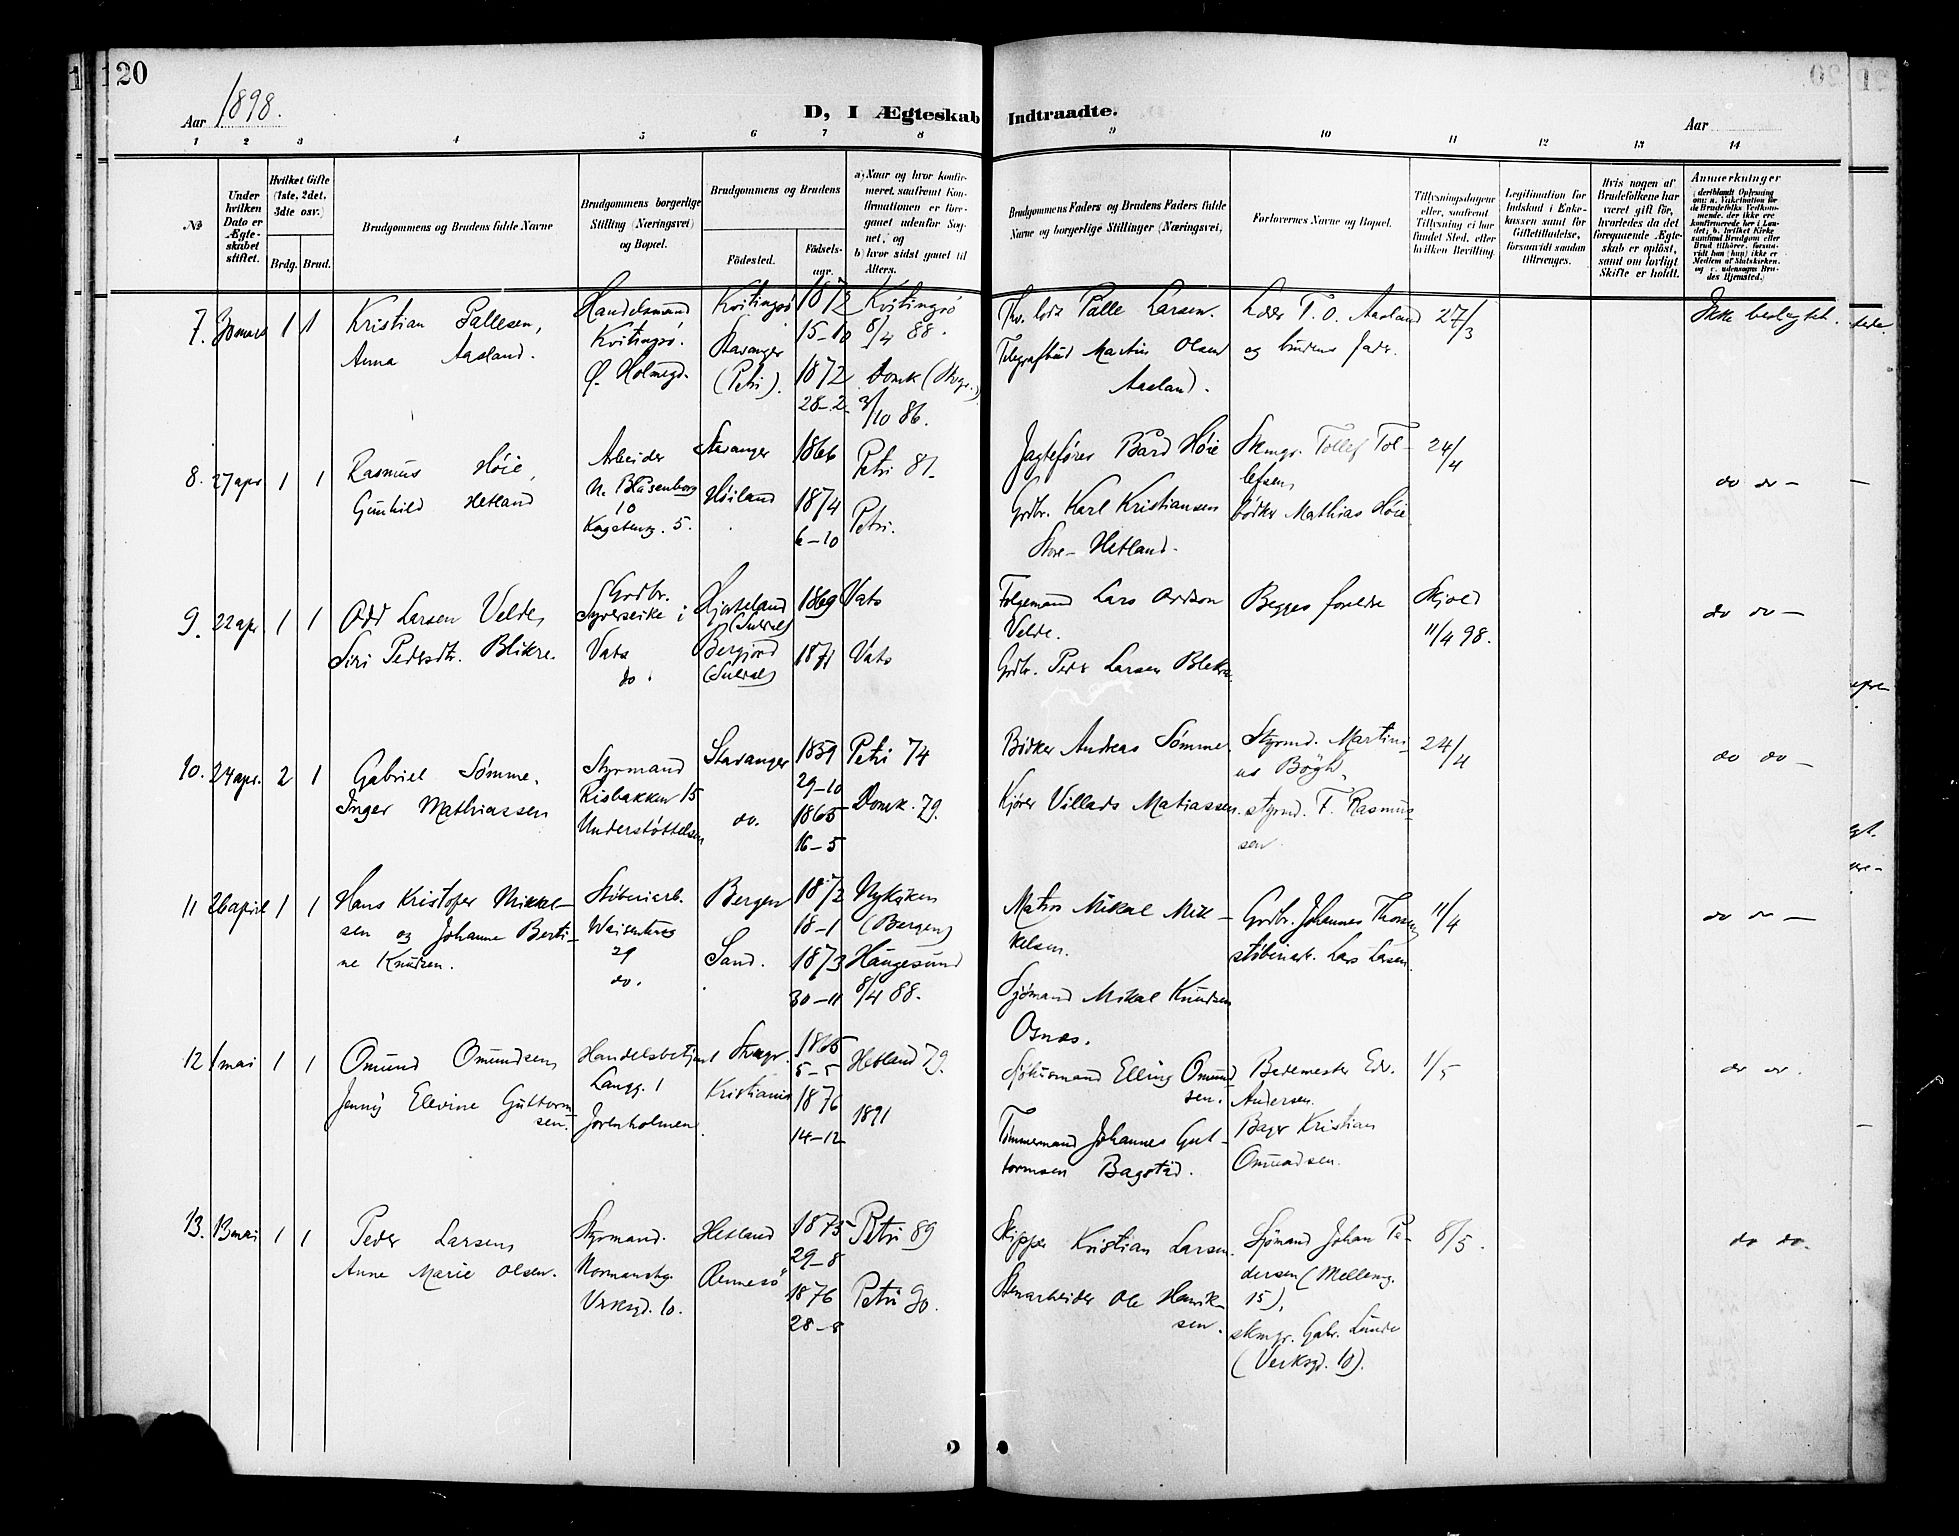 20
Aar 1898.
D, I Ægteskab Indtraadte.
Aar
1 2 3 4 5 6 7 8 9 10 11 12 13 14
No
Under hvilken Dato er Ægteskabet stiftet.
Hvilket Gifte (1ste, 2det, 3die osv.)
Brdg. Brud.
Brudgommens og Brudens fulde Navne
Brudgommens borgerlige Stilling (Næringsvei) og Bopæl.
Brudgommens og Brudens
Födested.
Födsels-aar.
a) Naar og hvor konfirmeret, saafremt Konfirmationen er foregaaet udenfor Sognet, og
b) hvor sidst gaaet til Alters.
Brudgommens Faders og Brudens Faders fulde Navne og borgerlige Stillinger (Næringsvei)
Forlovernes Navne og Bopæl.
Tillysningsdagene eller, saafremt Tillysning ei har fundet Sted, efter hvilken Bevilling.
Legitimation for Indskud i Enkekassen samt for Giftetilladelse, forsaavidt saadan tiltrænges.
Hvis nogen af Brudefolkene har været gift för, hvorledes da det foregaaende Ægteskab er oplöst, samt om lovligt Skifte er holdt.
Anmærkninger
7. 30 mars 1 1
Kristian Pallesen,
Anna Aasland.
Handelsmand
Kvitingsö.
Ø. Holmegd.
Kvitingsö
Stavanger
(Petri).
1872
15-10
1872
28-2
Kvitingsö
8/4 88.
Domk (Stvgr.)
3/10 86.
Palle Larsen.
Telegrafbud Martin Olsen
Aasland.
Lærer T. O. Aasland
og brudens fader.
27/3
Ikke beslegtet.
8. 27 apr 1 1
Rasmus Höie,
Gunhild Hetland
Arbeider
N. Blåsenborg
10
Kagsteng. 5.
Stavanger
Höiland
1866
1874
6-10
Petri 81.
Petri.
Jagtefører Bård Höie
Grdbr. Karl Kristiansen
Store-Hetland.
Skmgr. Tollef Tol-
lefsen,
bödker Mathias Höie
24/4
do do -
9. 22 apr 1 1
Odd Larsen Velde,
Siri Pedersdtr. Blikre.
Grdbr.
i
Vats
do.
Hjorteland
(Suledal)
(Suledal)
1869
1871
Vats
Vats
Folgemand Lars Oddson
Velde.
Grdbr. Peder Larsen Blekre.
Begges foreldre
Skjold
11/4 98.
do do -
10. 24 apr. 2 1
Gabriel Sömme,
Inger Mathiassen
Styrmand
Risbakken 15
Understöttelsen
Stavanger
do.
1859
29-10
1865
16-5
Petri 74
Domk. 79.
Bödker Andreas Sömme
Kjörer Villads Matiassen.
Styrmd. Martini-
us Bögh,
styrmd. F. Rasmus-
sen.
24/4
do do -
11 26 april 1 1
Hans Kristofer Mikkel-
sen og Johanne Berti-
ne Knudsen.
Stöberiarb.
29
do.
Bergen
Sand.
1872
18-1
1873
30-11
Nykirken
(Bergen)
Haugesund
8/4 88.
Matros Mikal Mik-
kelsen.
Sjömand Mikal Knudsen
Osnæs.
Grdbr. Johannes Thomsen,
stöberiarb. Lars Larsen.
11/4
do do -
12 1 mai 1 1
Omund Omundsen,
Jenny Elevine Guttorm-
sen.
Handelsbetjent
Langg. 1
Jorenholmen
Stvgr.
Kristiania
1865
5-5
1876
14-12
Hetland 79.
1891
Sjöhusmand Elling Omund-
sen.
Tömmermand Johannes Gut-
tormsen Bagstad.
Bademester Edv.
Andersen.
Bager Kristian
Omundsen.
1/5
do do.
13. 13 mai 1 1
Peder Larsen,
Anne Marie Olsen.
Styrmand.
Normanshg.
Verksgd. 10.
Hetland
Rennesö
1875
29-8
1876
28-8
Petri 89
Petri 90.
Skipper Kristian Larsen.
Stenarbeider Ole Henrik-
sen.
Sjömand Johan Pe-
dersen (Mellemg.
15),
skmgr. Gabr. Lunde
(Verksgd. 10).
8/5.
do do.